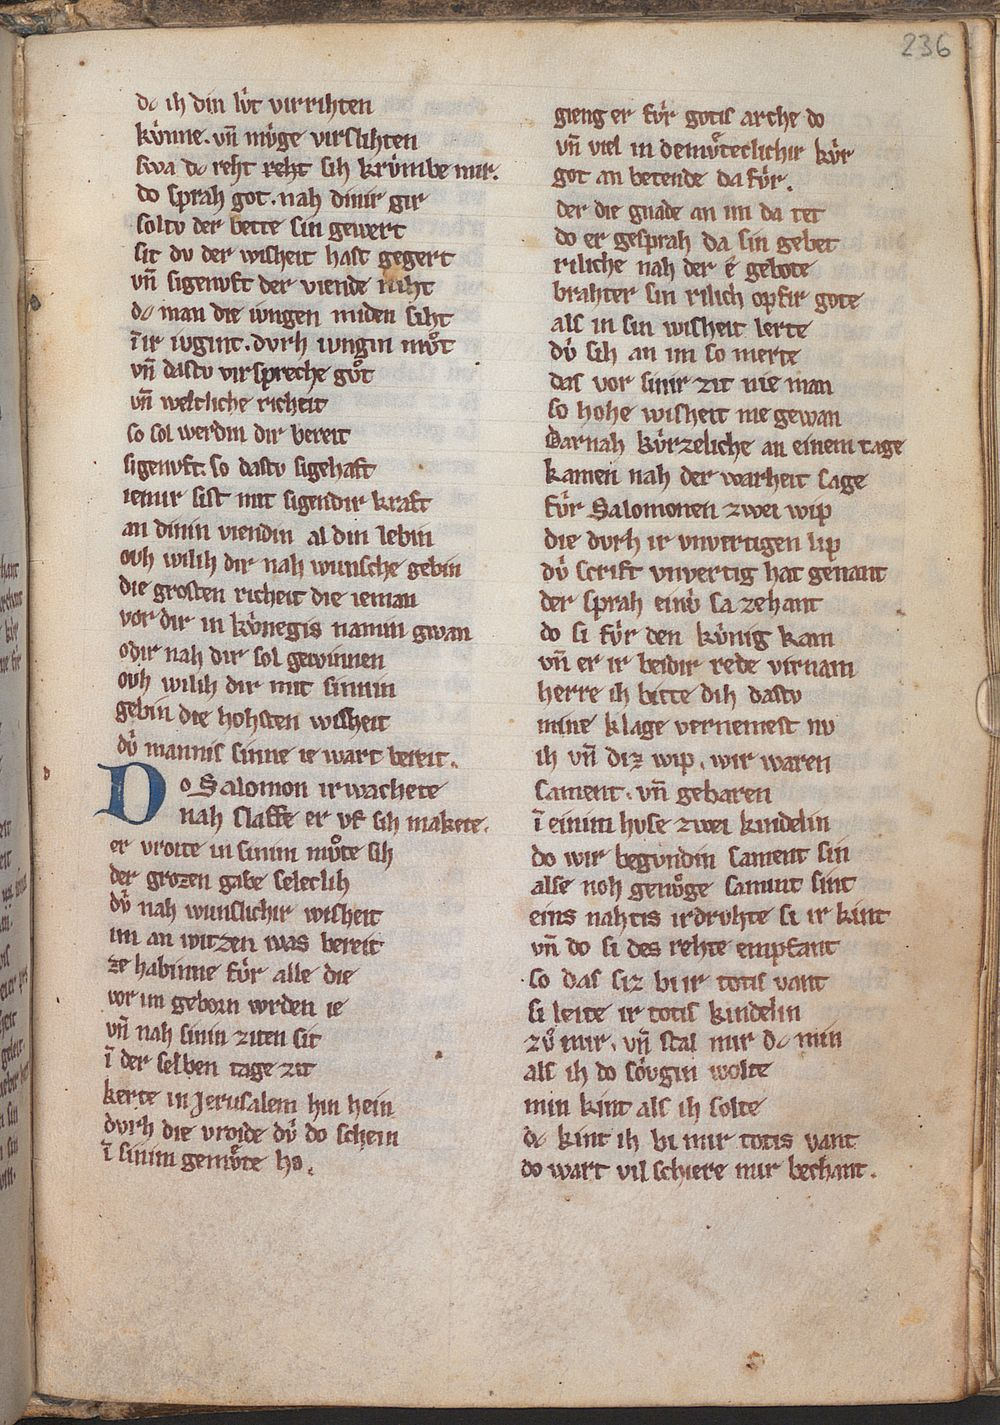 236
dc ih din lv̍t virrihten
kv̍nne. vn̄ mv̍ge virslihten
swa dc reht reht sih krv̍mbe mir.
do sprah got. nah dinir gir
soltv der bette sin gewert
sit dv der wisheit hast gegert
vn̄ sigenvft der viende niht
dc man die ivngen miden siht
ī ir ivgint. dvrh ivngin mvͦt
vn̄ dastv virspreche gvͦt
vn̄ weltliche richeit
so sol werdin dir bereit
sigenvft. so dastv sigehaft
iemir sist mit sigendir kraft
an dinin viendin al din lebin
ovh wilih dir nah wunsche gebin
die grosten richeit die ieman
vor dir in kv̍negis namin gwan
odir nah dir sol gewinnen
ovh wilih dir mit sinnin
gebin die hohsten wisheit
dv̍ mannis sinne ie wart bereit.
Do Salomon irwachete
nah slaffe er vf sih makete.
er vroite in sinim mvͦte sih
der grozen gabe seleclih
dv̍ nah wunslichir wisheit
im an witzen was bereit
ze habinne fv̍r alle die
vor im geborn wrden ie
vn̄ nah sinin ziten sit
ī der selben tage zit
kerte in Jerusalem hin hein
dvrh die vroide dv̍ do schein
ī sinim gemvͦte ho.
gieng er fv̍r gotis arche do
vn̄ viel in demvͤteclichir kv̍r
got an betende da fv̍r.
der die gnade an im da tet
do er gesprah da sin gebet
riliche nah der e̍ gebote
brahter sin rilich opfir gote
als in sin wisheit lerte
dv̍ sih an im so merte
das vor sinir zit nie man
so hohe wisheit nie gewan
Darnah kv̍rzeliche an einem tage
kamen nah der warheit sage
fv̍r Salomonen zwei wip
die dvrh ir vnvertigen lip
dv̍ scrift vnvertig hat genant
der sprah einv̍ sa zehant
do si fv̍r den kv̍nig kam
vn̄ er ir beidir rede virnam
herre ih bitte dih dastv
mine klage vernemest nv
ih vn̄ diz wip. wir waren
sament. vn̄ gebaren
ī einim hvse zwei kindelin
do wir begvndin sament sin
alse noh genvͦge samint sint
eins nahtis irdruhte si ir kint
vn̄ do si des rehte empfant
so das siz bi ir totis vant
si leite ir totis kindelin
zvͦ mir. vn̄ stal mir dc min
als ih do sōvgin wolte
min kint als ih solte
dc kint ih bi mir totis vant
do wart vil schiere mir bechant.